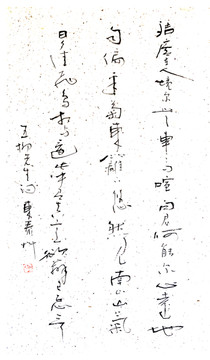 結廬在人境而無車馬喧問君何能尔心遠地
自偏采菊東籬下悠然見南山山氣
日夕佳飛鳥相與還此中有真意欲辨已忘言
五柳先生詩